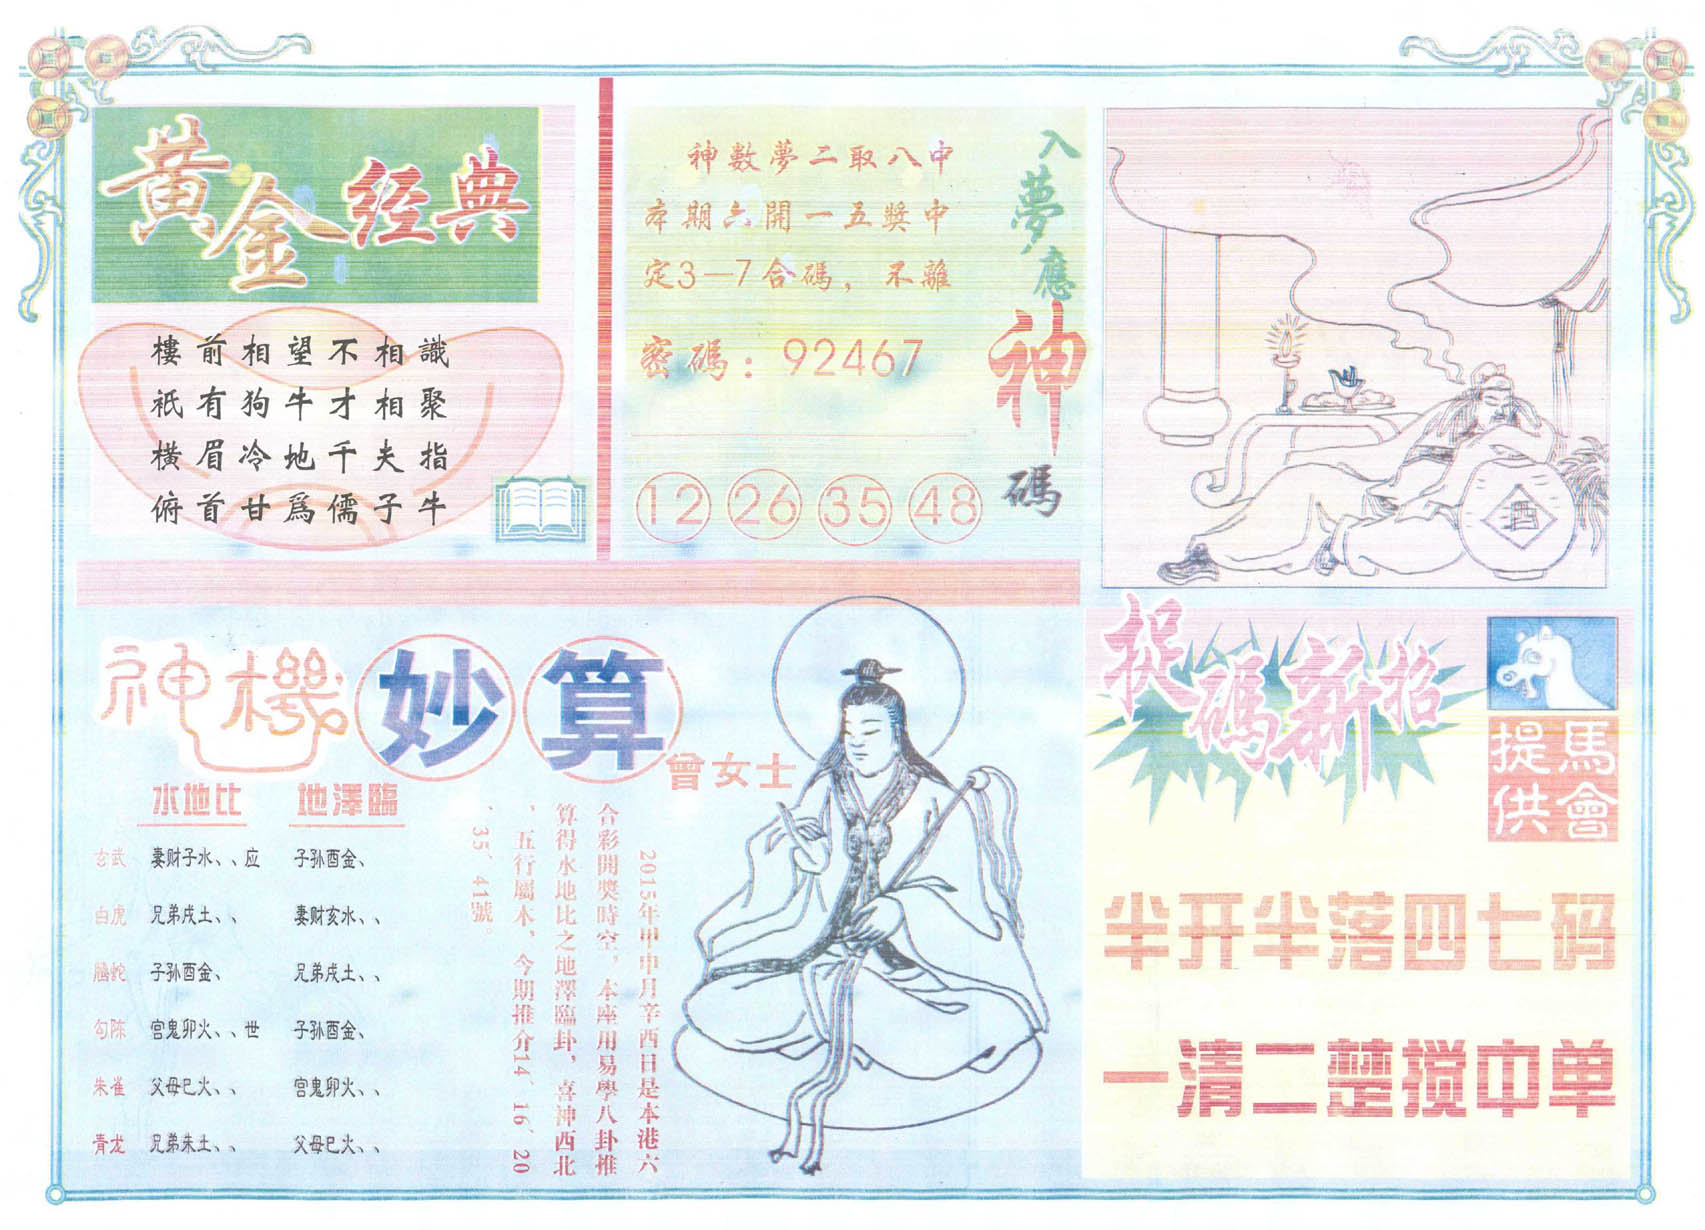 黄金经典
樓前相望不相識
祇有狗牛才相聚
横眉冷地千夫指
俯首甘爲儒子牛
神數夢二取八中
本期六開一五獎中
定3—7合碼，不離
密碼：92467
12 26 35 48
入夢應神碼
酒
神機妙算
曾女士
水地比 地澤臨
玄武 妻财子水、、应 子孙酉金、
白虎 兄弟戌土、、 妻财亥水、、
螣蛇 子孙酉金、 兄弟戌土、、
勾陈 官鬼卯火、、世 子孙酉金、
朱雀 父母巳火、、 官鬼卯火、、
青龙 兄弟朱土、、 父母巳火、、
2015年甲申月辛酉日是本港六
合彩開獎時空，本座用易學八卦推
算得水地比之地澤臨卦，喜神西北
，五行屬木，今期推介14、16、20
、35、41號。
捉碼新招
馬會提供
半开半落四七码
一清二楚搅中单